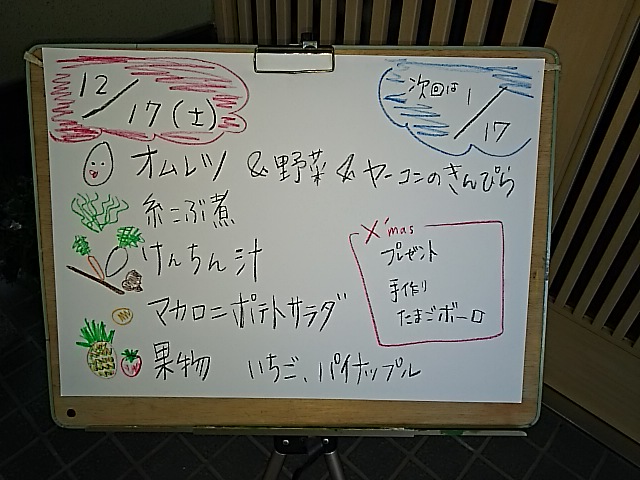 12/17(土)
次回は 1/17
オムレツ &野菜&ヤーコンのきんぴら
糸こぶ煮
けんちん汁
マカロニポテトサラダ
果物 いちご、パイナップル
X'mas
プレゼント
手作り
たまごボーロ